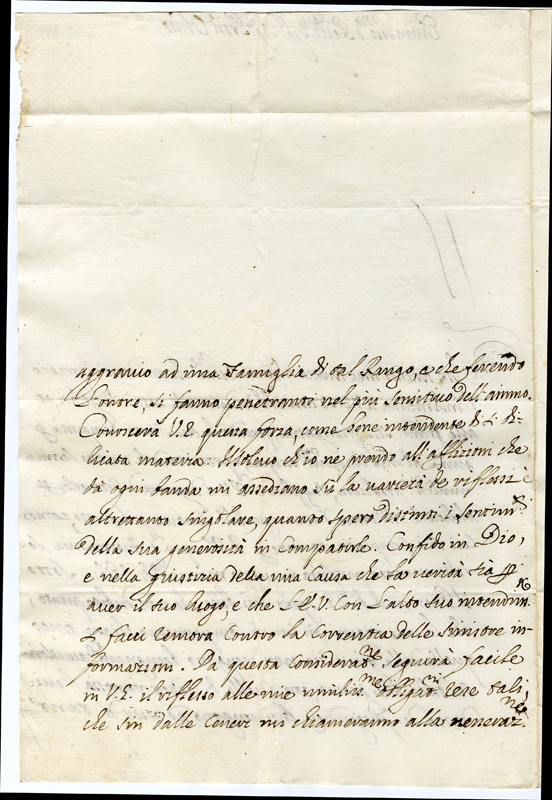 aggravio ad una Famiglia di tal Rango, e che ferendo
l'onore, si fanno penetranti nel piu sensitivo dell'animo.
Conoscerà V.E. questa forza, come bene intendente di sì de-
licata materia. Il solievo ch'io ne prendo all'afflizioni che
da ogni banda mi assediano sù la varietà de riflessi è
altrettanto singolare, quanto spero distinti i sentim.ti
della sua generosità in Compatirle. Confido in Dio,
e nella giustizia della mia Causa che la verità sia p
aver il suo luogo, e che l'E.V. con l'alto suo intendim.to
si facci remora contro la corrente delle sinistre in-
formazioni. Da questa considerat.ne seguirà facile
in V.E. il riflesso alle mie umilis.me obligat.ni rese tali,
che sin dalle Ceneri mi chiameranno alla veneraz.ne